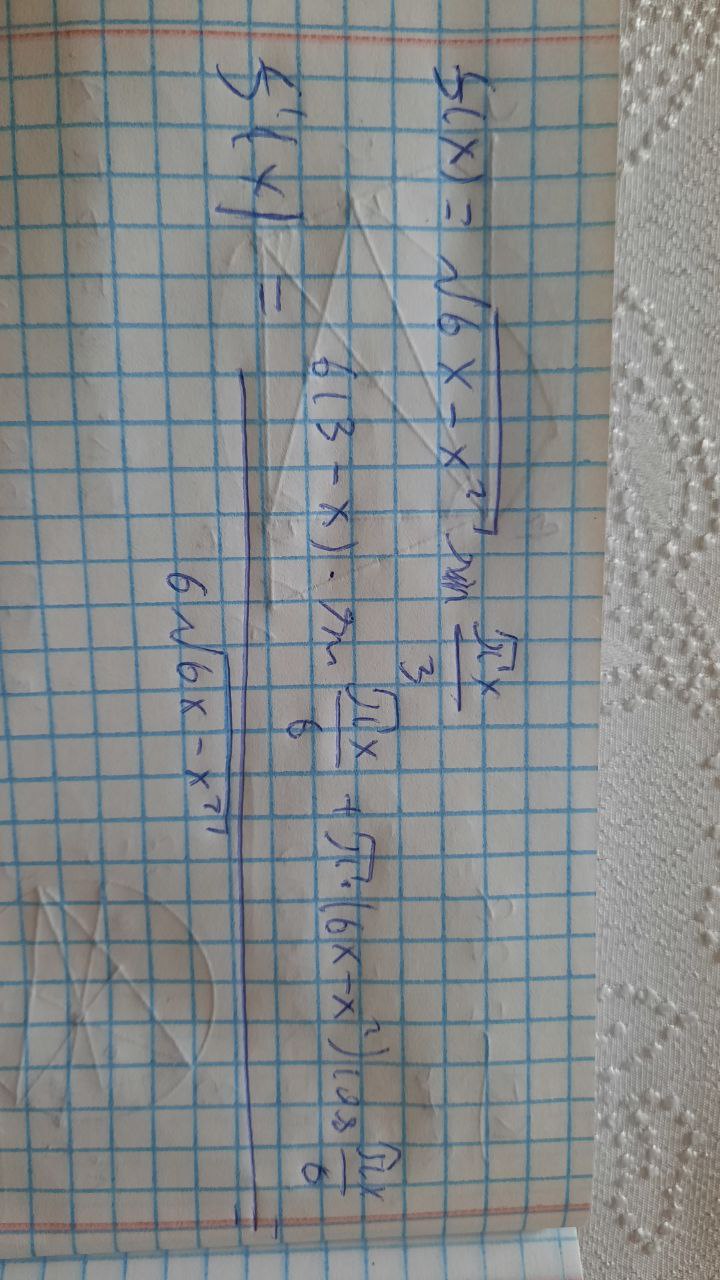 f(x) = √(6x - x²) sin πx/3
f'(x) = 6(3 - x) · sin πx/6 + π · (6x - x²) cos πx/6
6√(6x - x²)